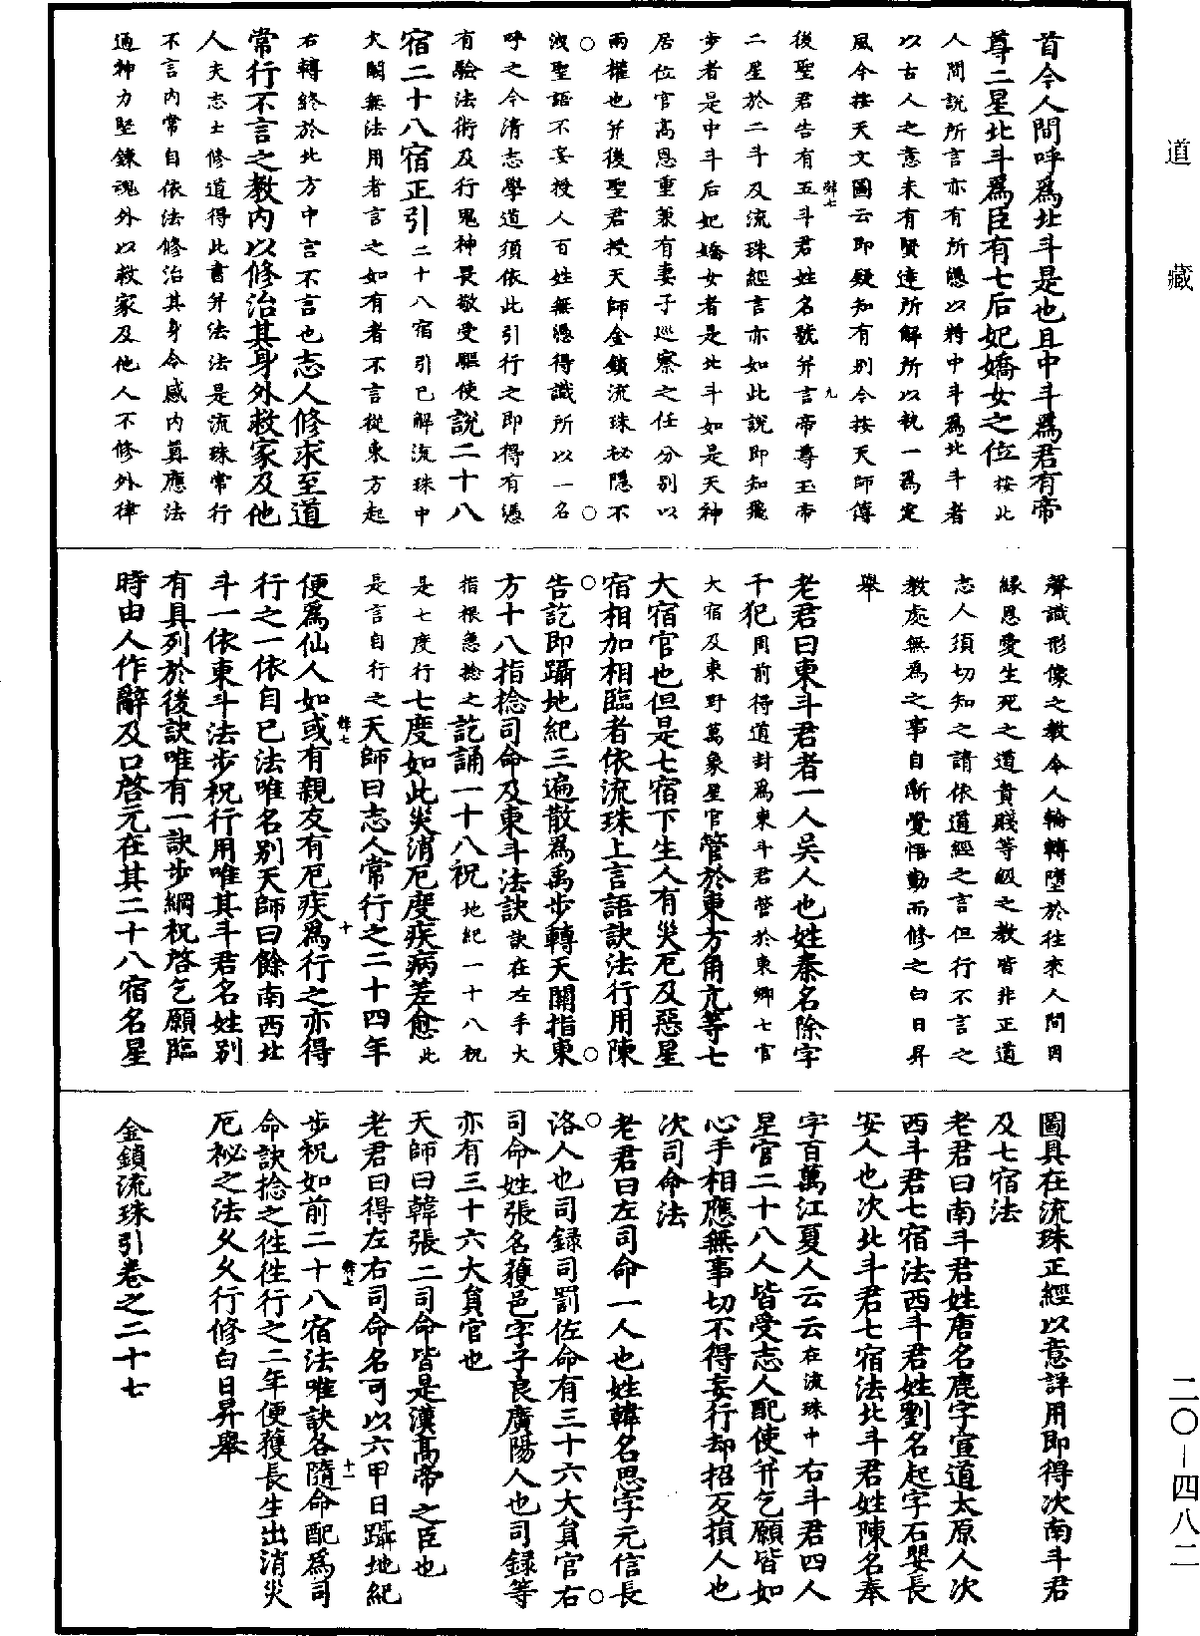 道藏
首今人間呼爲北斗是也且中斗爲君有帝
尊二星北斗爲臣有七后妃嬌女之位按此
人間說所言亦有所憑以將中斗爲北斗者
以古人之意未有賢達所解所以執一爲定
風今按天文圖云即疑知有別今按天師傳
後聖君告有五斗君姓名號并言帝尊玉帝
二星於二斗及流珠經言亦如此說即知飛
步者是中斗后妃嬌女者是北斗如是天神
居位官高恩重兼有妻子巡察之任分別以
兩權也并後聖君授天師金鎖流珠秘隱不
洩聖語不妄授人百姓無憑得識所以一名
呼之今清志學道須依此引行之即得有憑
有驗法術及行鬼神畏敬受驅使說二十八
宿二十八宿正引二十八宿引已解流珠中
大闕無法用者言之如有者不言從東方起
右轉終於北方中言不言也志人修求至道
常行不言之教內以修治其身外救家及他
人夫志士修道得此書并法法是流珠常行
不言內常自依法修治其身令感內真應法
通神力堅鍊魂外以救家及他人不修外律
聲識形像之教令人輪轉墮於往來人間因
緣恩愛生死之道貴賤等級之教皆非正道
志人須切知之請依道經之言但行不言之
教處無爲之事自漸覺悟勤而修之白日昇
舉
老君曰東斗君者一人吳人也姓秦名除字
千犯周前得道封爲東斗君管於東鄉七官
大宿及東野萬象星官管於東方角亢等七
大宿官也但是七宿下生人有災厄及惡星
宿相加相臨者依流珠上言語訣法行用陳
告訖即躡地紀三遍散爲禹步轉天關指東
方十八指捻司命及東斗法訣訣在左手大
指根急捻之訖誦一十八祝地紀一十八祝
是七度行七度如此災消厄度疾病差愈此
是言自行之天師曰志人常行之二十四年
便爲仙人如或有親友有厄疾爲行之亦得
行之一依自己法唯名別天師曰餘南西北
斗一依東斗法步祝行用唯其斗君名姓別
有具列於後訣唯有一訣步綱祝啓乞願臨
時由人作辭及口啓元在其二十八宿名星
圖具在流珠正經以意詳用即得次南斗君
及七宿法
老君曰南斗君姓唐名鹿字宣道太原人次
西斗君七宿法西斗君姓劉名起字石嬰長
安人也次北斗君七宿法北斗君姓陳名奉
字百萬江夏人云云在流珠中右斗君四人
星官二十八人皆受志人配使并乞願皆如
心手相應無事切不得妄行却招反損人也
次司命法
老君曰左司命一人也姓韓名思字元信長
洛人也司錄司罰佐命有三十六大員官右
司命姓張名蒦邑字子良廣陽人也司錄等
亦有三十六大員官也
天師曰韓張二司命皆是漢高帝之臣也
老君曰得左右司命名可以六甲日躡地紀
步祝如前二十八宿法唯訣各隨命配爲司
命訣捻之往往行之二年便獲長生出消災
厄祕之法久久行修白日昇舉
金鎖流珠引卷之二十七
二〇—四八二